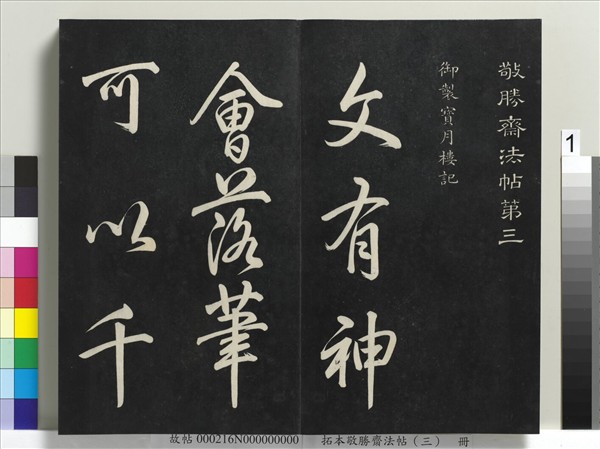 敬勝齋法帖第三
御製寳月樓記
文有神
會落筆
可以千
1
故帖 000216N000000000 拓本敬勝齋法帖（三） 冊